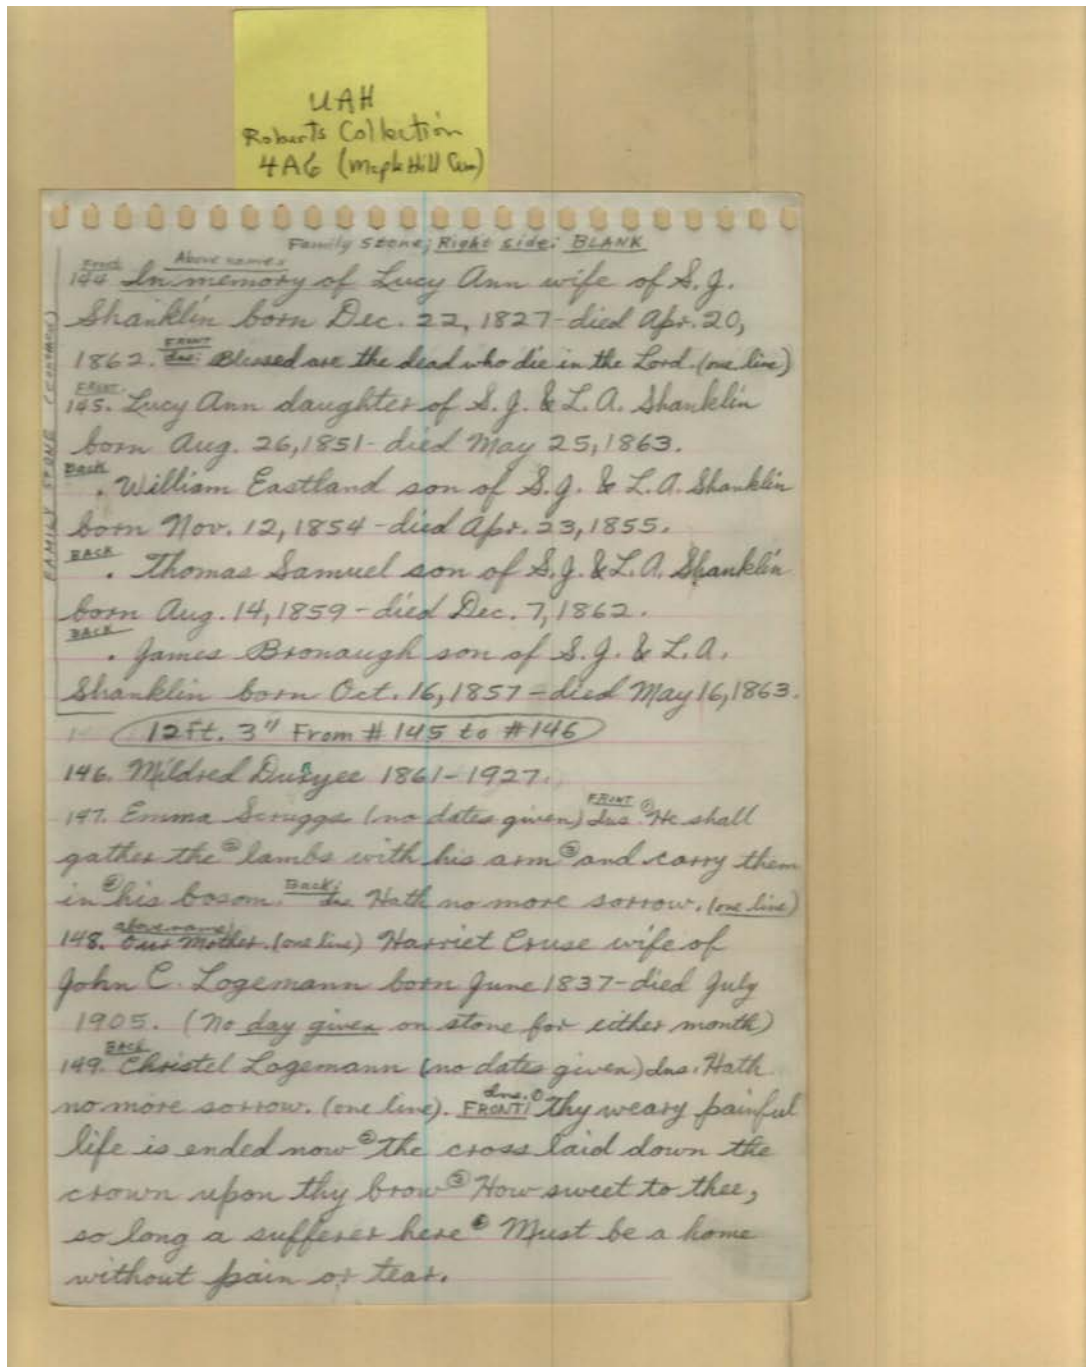 UAH
Roberts Collection
4A6 (Maple Hill Cem)
Family Stone; Right side: BLANK
FAMILY STONE
Front Above names
144 In memory of Lucy Ann wife of S. J.
Shanklin born Dec. 22, 1827 - died Apr. 20,
FRONT
1862. Ins: Blessed are the dead who die in the Lord. (one line)
FRONT.
145. Lucy Ann daughter of S. J. & L. A. Shanklin
born Aug. 26, 1851 - died May 25, 1863.
Back
. William Eastland son of S. J. & L. A. Shanklin
born Nov. 12, 1854 - died Apr. 23, 1855.
BACK
. Thomas Samuel son of S. J. & L. A. Shanklin
born Aug. 14, 1859 - died Dec. 7, 1862.
BACK
. James Bronaugh son of S. J. & L. A.
Shanklin born Oct. 16, 1857 - died May 16, 1863.
12 ft. 3" From # 145 to # 146
146. Mildred Duryee 1861 - 1927.
FRONT
147. Emma Scruggs (no dates given) Ins. ① He shall
gather the ② lambs with his arm ③ and carry them
in ④ his bosom. Back: Ins Hath no more sorrow. (one line)
above name
148. Our Mother. (one line) Harriet Cruse wife of
John C. Logemann born June 1837 - died July
1905. (No day given on stone for either month)
BACK
149. Christel Logemann (no dates given) Ins. Hath
no more sorrow. (one line). FRONT: Ins. ① Thy weary painful
life is ended now ② The cross laid down the
crown upon thy brow ③ How sweet to thee,
so long a sufferer here ④ Must be a home
without pain or tear.